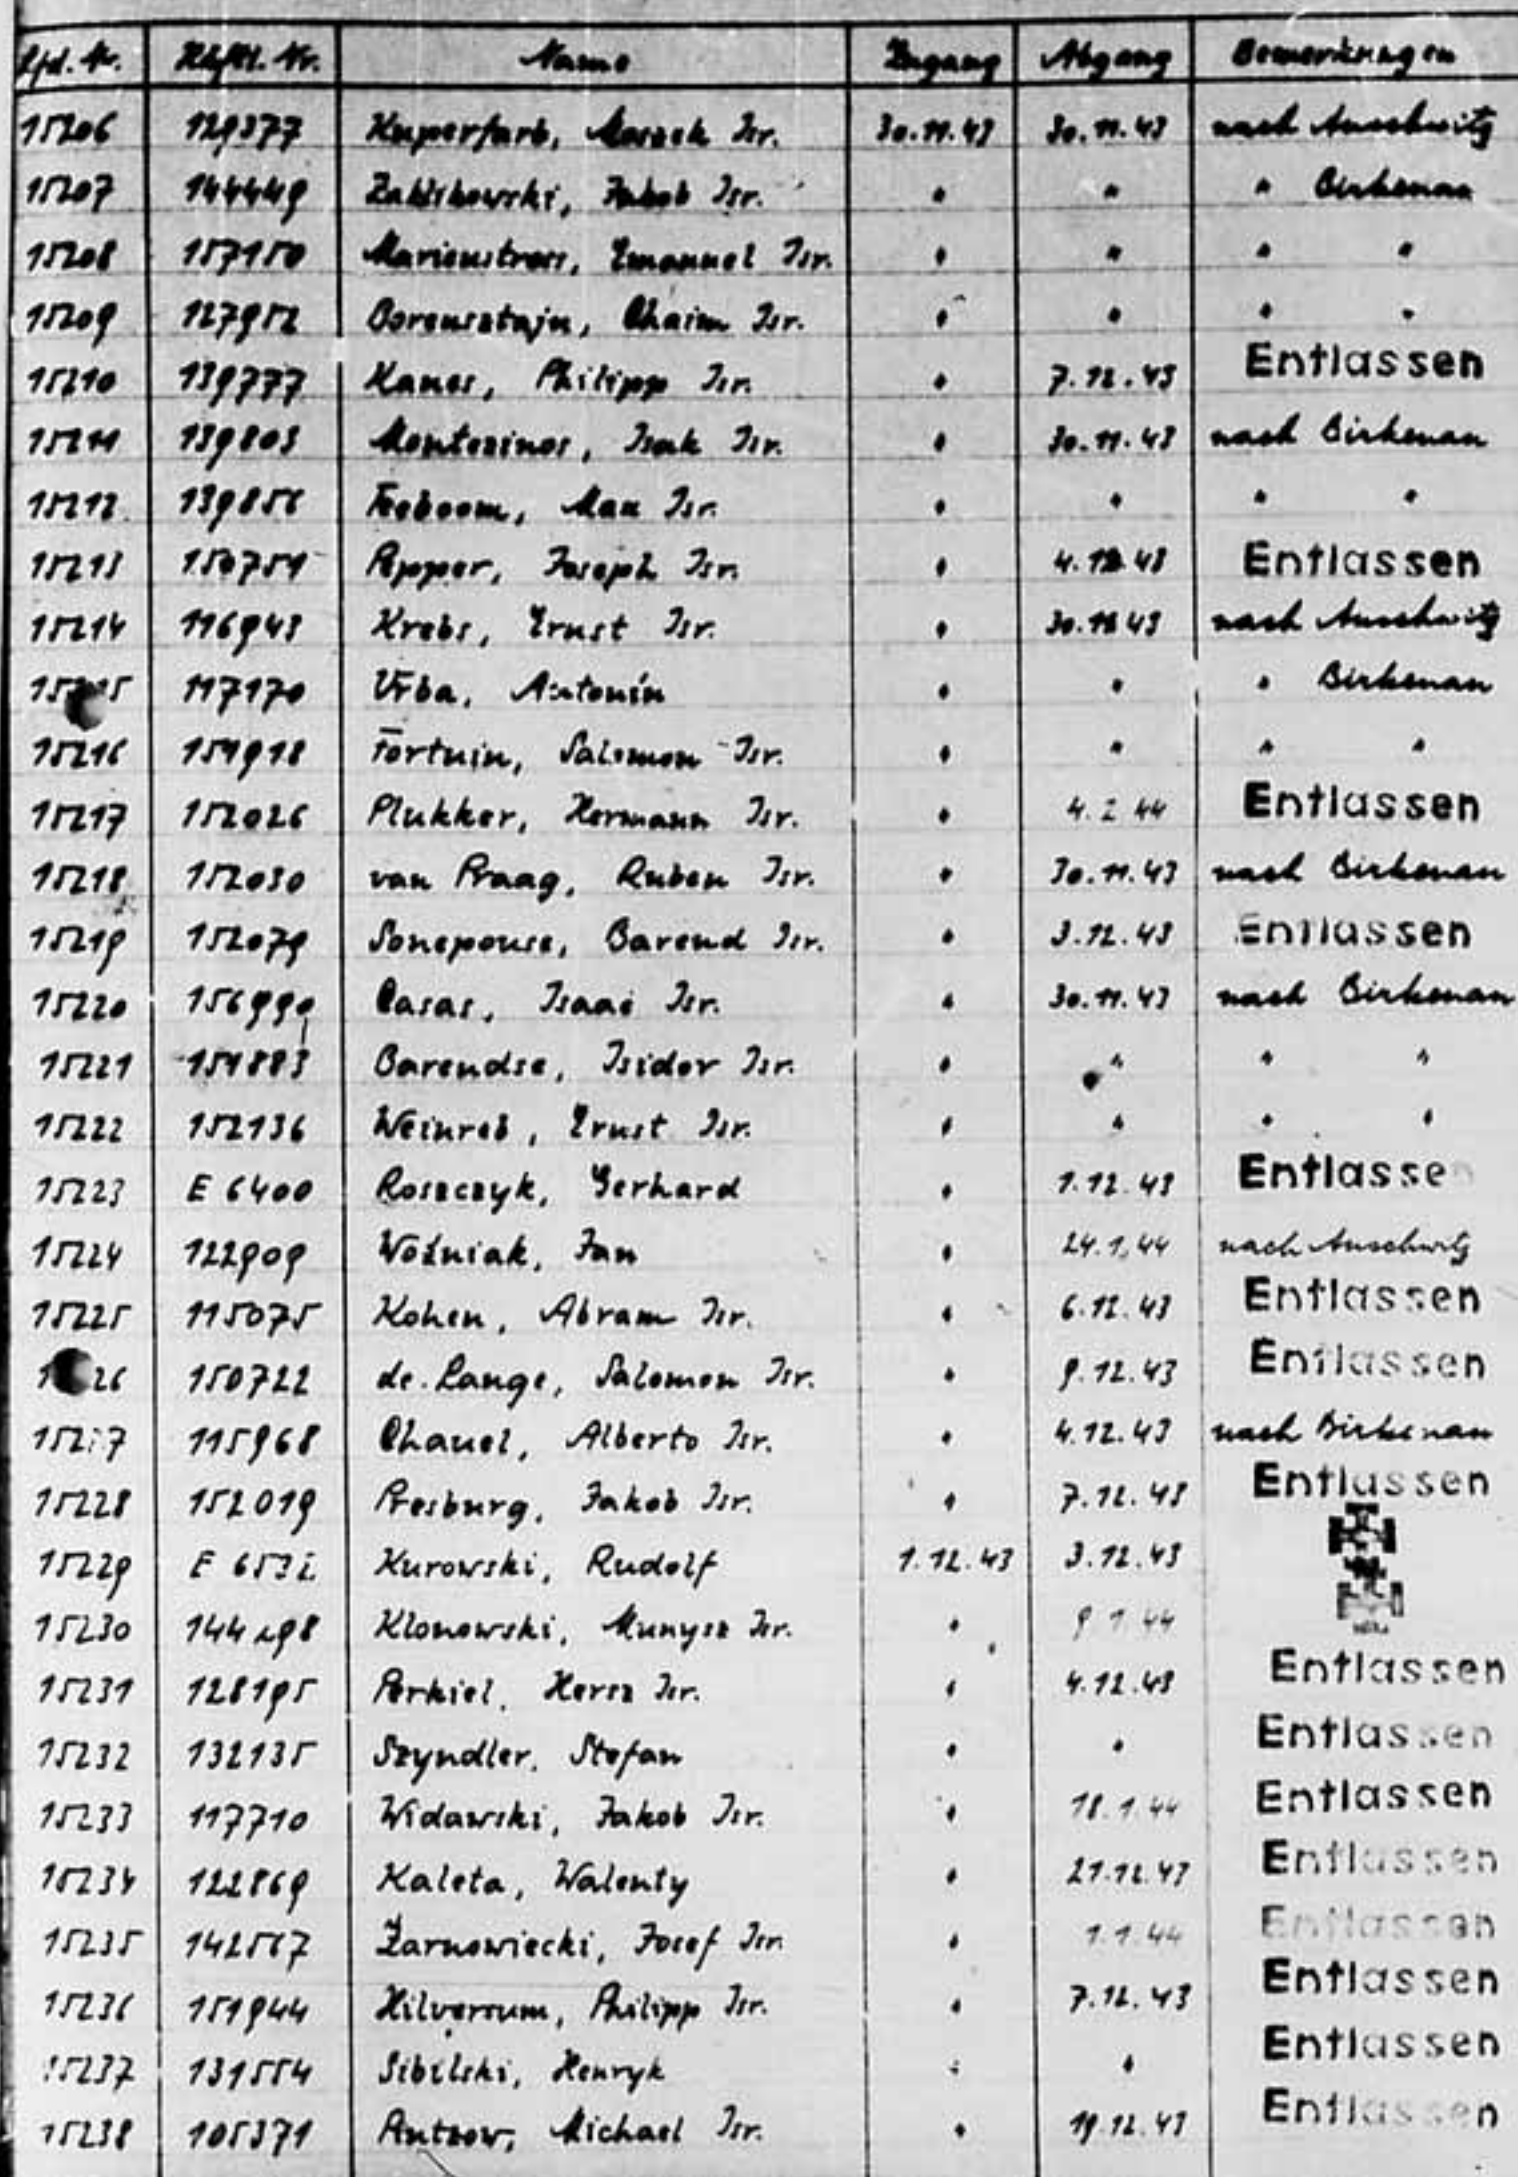 Lfd. Nr. Häftl. Nr. Name Zugang Abgang Bemerkungen
15206 129377 Kuperfarb, Moszek Isr. 30.11.43 30.11.43 nach Auschwitz
15207 144449 Jakob Isr. " " " Birkenau
15208 157150 Marienstrass, Emanuel Isr. " " " "
15209 127952 Borensztajn, Chaim Isr. " " " "
15210 139777 Kanes, Philipp Isr. " 7.12.43 Entlassen
15211 139803 Montezinos, Isak Isr. " 30.11.43 nach Birkenau
15212 139856 Max Isr. " " " "
15213 150751 Pepper, Joseph Isr. " 4.12.43 Entlassen
15214 116943 Krebs, Ernst Isr. " 30.11.43 nach Auschwitz
15215 117170 Vrba, Antonín " " " Birkenau
15216 151918 Fortuin, Salomon Isr. " " " "
15217 152026 Plukker, Hermann Isr. " 4.2.44 Entlassen
15218 152030 van Praag, Ruben Isr. " 30.11.43 nach Birkenau
15219 152079 Sonepouse, Barend Isr. " 3.12.43 Entlassen
15220 156990 Casas, Isaac Isr. " 30.11.43 nach Birkenau
15221 151883 Barendse, Isidor Isr. " " " "
15222 152136 Weinreb, Ernst Isr. " " " "
15223 E 6400 Roszczyk, Gerhard " 1.12.43 Entlassen
15224 122909 Woźniak, Jan " 24.1.44 nach Auschwitz
15225 115075 Kohen, Abram Isr. " 6.12.43 Entlassen
26 150722 de Lange, Salomon Isr. " 9.12.43 Entlassen
15227 115968 Chauel, Alberto Isr. " 4.12.43 nach Birkenau
15228 152019 Presburg, Jakob Isr. " 7.12.43 Entlassen
15229 Kurowski, Rudolf 1.12.43 3.12.43
15230 Klonowski, Munysz Isr. " 9.1.44
15231 128195 Perkiel, Hersz Isr. " 4.12.43 Entlassen
15232 132135 Szyndler, Stefan " " Entlassen
15233 117710 Widawski, Jakob Isr. " 18.1.44 Entlassen
15234 122869 Kaleta, Walenty " 21.12.43 Entlassen
15235 142567 Żarnowiecki, Josef Isr. " 1.1.44 Entlassen
15236 151944 Hilversum, Philipp Isr. " 7.12.43 Entlassen
15237 131554 Sibilski, Henryk " " Entlassen
15238 105371 Michael Isr. " 19.12.43 Entlassen